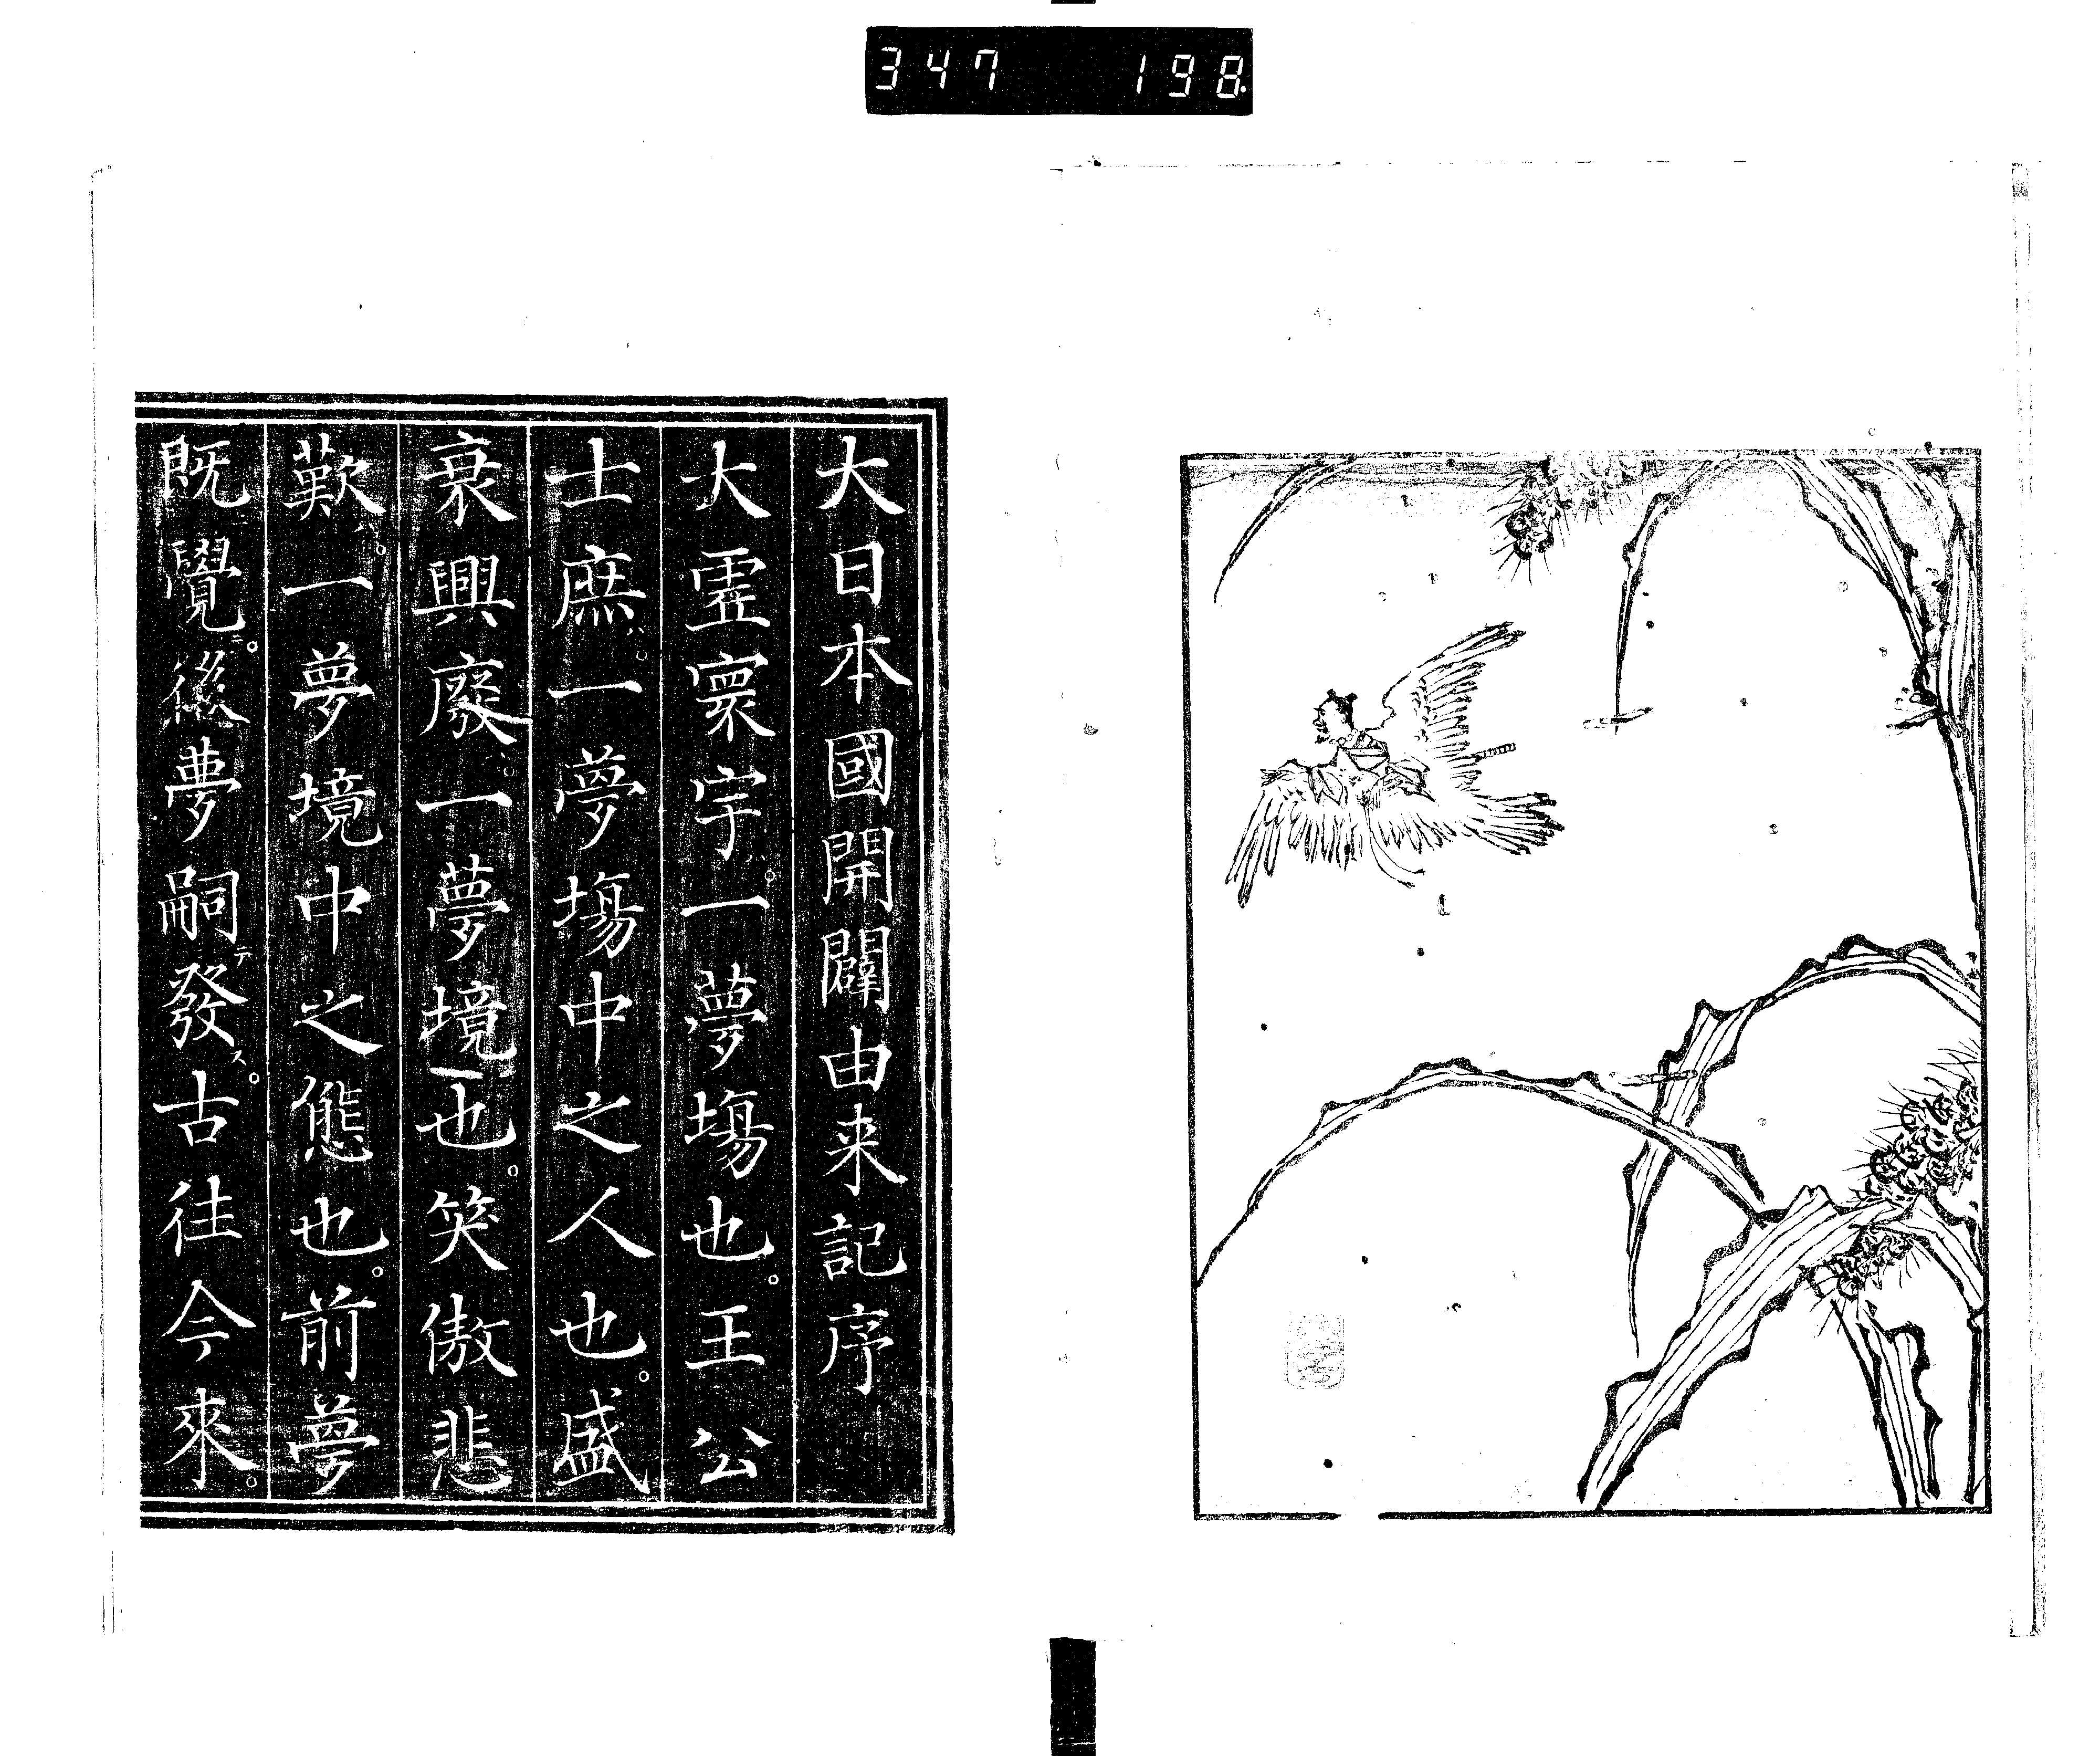 347 198
大日本國開闢由来記序
大霊寰宇ハ。一夢場也。王公
士庶ハ。一夢場中之人也。盛
衰興廢ハ。一夢境也。笑傲悲
歎ハ。一夢境中之態也。前夢
既覺ニ。後夢嗣テ發ス。古往今來。